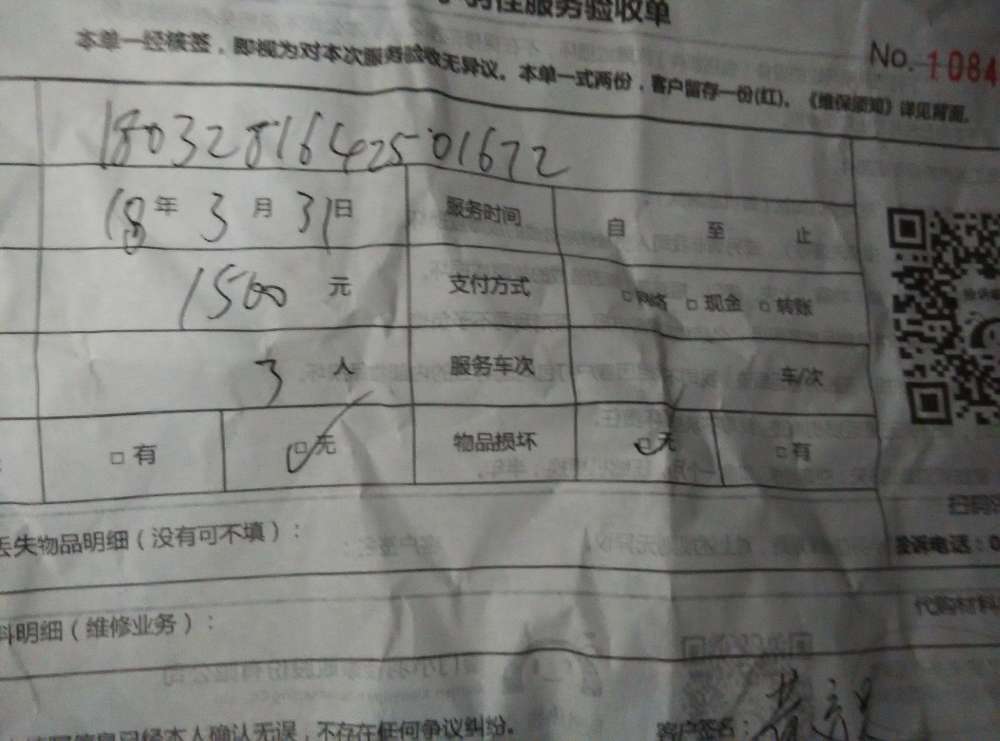 服务验收单
No. 1084
本单一经被签，即视为对本次服务验收无异议。本单一式两份，客户留存一份(红)。《维保须知》详见背面。
1803281642501672
18年3月31日 服务时间 自 至 止
1500元 支付方式 □网络 □现金 □转账
3人 服务车次 车/次
□有 □无 物品损坏 □无 □有
丢失物品明细（没有可不填）：
投诉电话：0
料明细（维修业务）：
代购材料
信息已经本人确认无误，不存在任何争议纠纷。
客户签名：